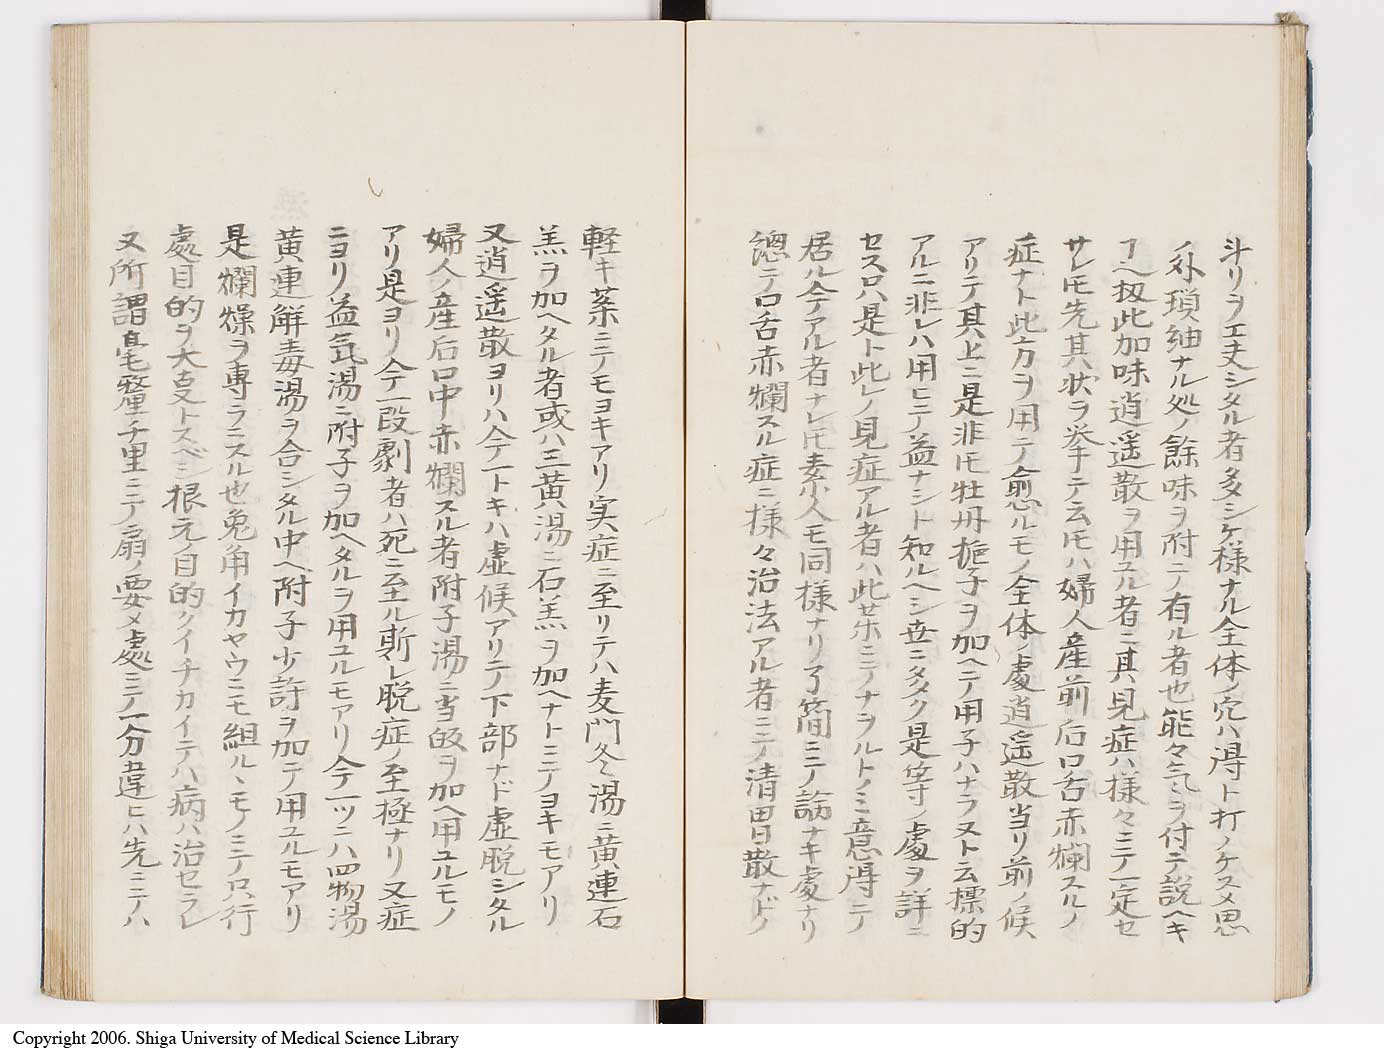 斗リヲ工夫シタル者多シケ様ナル全体ノ穴ハ得ト打ノケスメ思
外瑣紬ナル処ノ餘味ヲ附ニテ有ル者也能々気ヲ付テ説ヘキ
ヿヘ扨此加味逍遥散ヲ用ユル者ニ其見症ハ様々ニテ一定セ
サレ𪜈先其状ヲ挙テ云𪜈ハ婦人産前后口舌赤爛スルノ
症ナト此方ヲ用テ愈ルモノ全体ノ處逍遥散当リ前ノ候
アリテ其上ニ是非𪜈牡丹梔子ヲ加ヘテ用子ハナラヌト云標的
アルニ非レハ用ヒテ益ナシト知ルヘシ世ニ多ク是等ノ處ヲ詳ニ
セスロハ是ト此レノ見症アル者ハ此茶ニテナヲルトノミ意得テ
居ル仐テアル者ナレ𪜈素人モ同様ナリ了簡ミノ詰ナキ處ナリ
總テ口舌赤爛スル症ニ様々治法アル者ニテ清胃散ナドノ
軽キ薬ニテモヨキアリ実症ニ至リテハ麦門冬湯ニ黄連石
羔ヲ加ヘタル者或ハ三黄湯ニ石羔ヲ加ヘナトニテヨキモアリ
又逍遥散ヨリハ仐一トキハ虚候アリテ下部ナド虚脱シタル
婦人ノ産后口中赤爛スル者附子湯ニ当皈ヲ加ヘ用ユルモノ
アリ是ヨリ仐一段劇者ハ死ニ至ル斯レ脱症ノ至極ナリ又症
ニヨリ益気湯ニ附子ヲ加ヘタルヲ用ユルモアリ仐一ツニハ四物湯
黄連解毒湯ヲ合シタル中ヘ附子少許ヲ加テ用ユルモアリ
是爛燥ヲ専ラニスル也兎角イカヤウニモ組ルヽモノニテ只行
處目的ヲ大叓トスベシ根元目的クイチカイテハ病ハ治セラレ
又所謂毫釐千里ニテ扇ノ要メ處ニテ一分違ヒハ先ニテハ
Copyright 2006. Shiga University of Medical Science Library